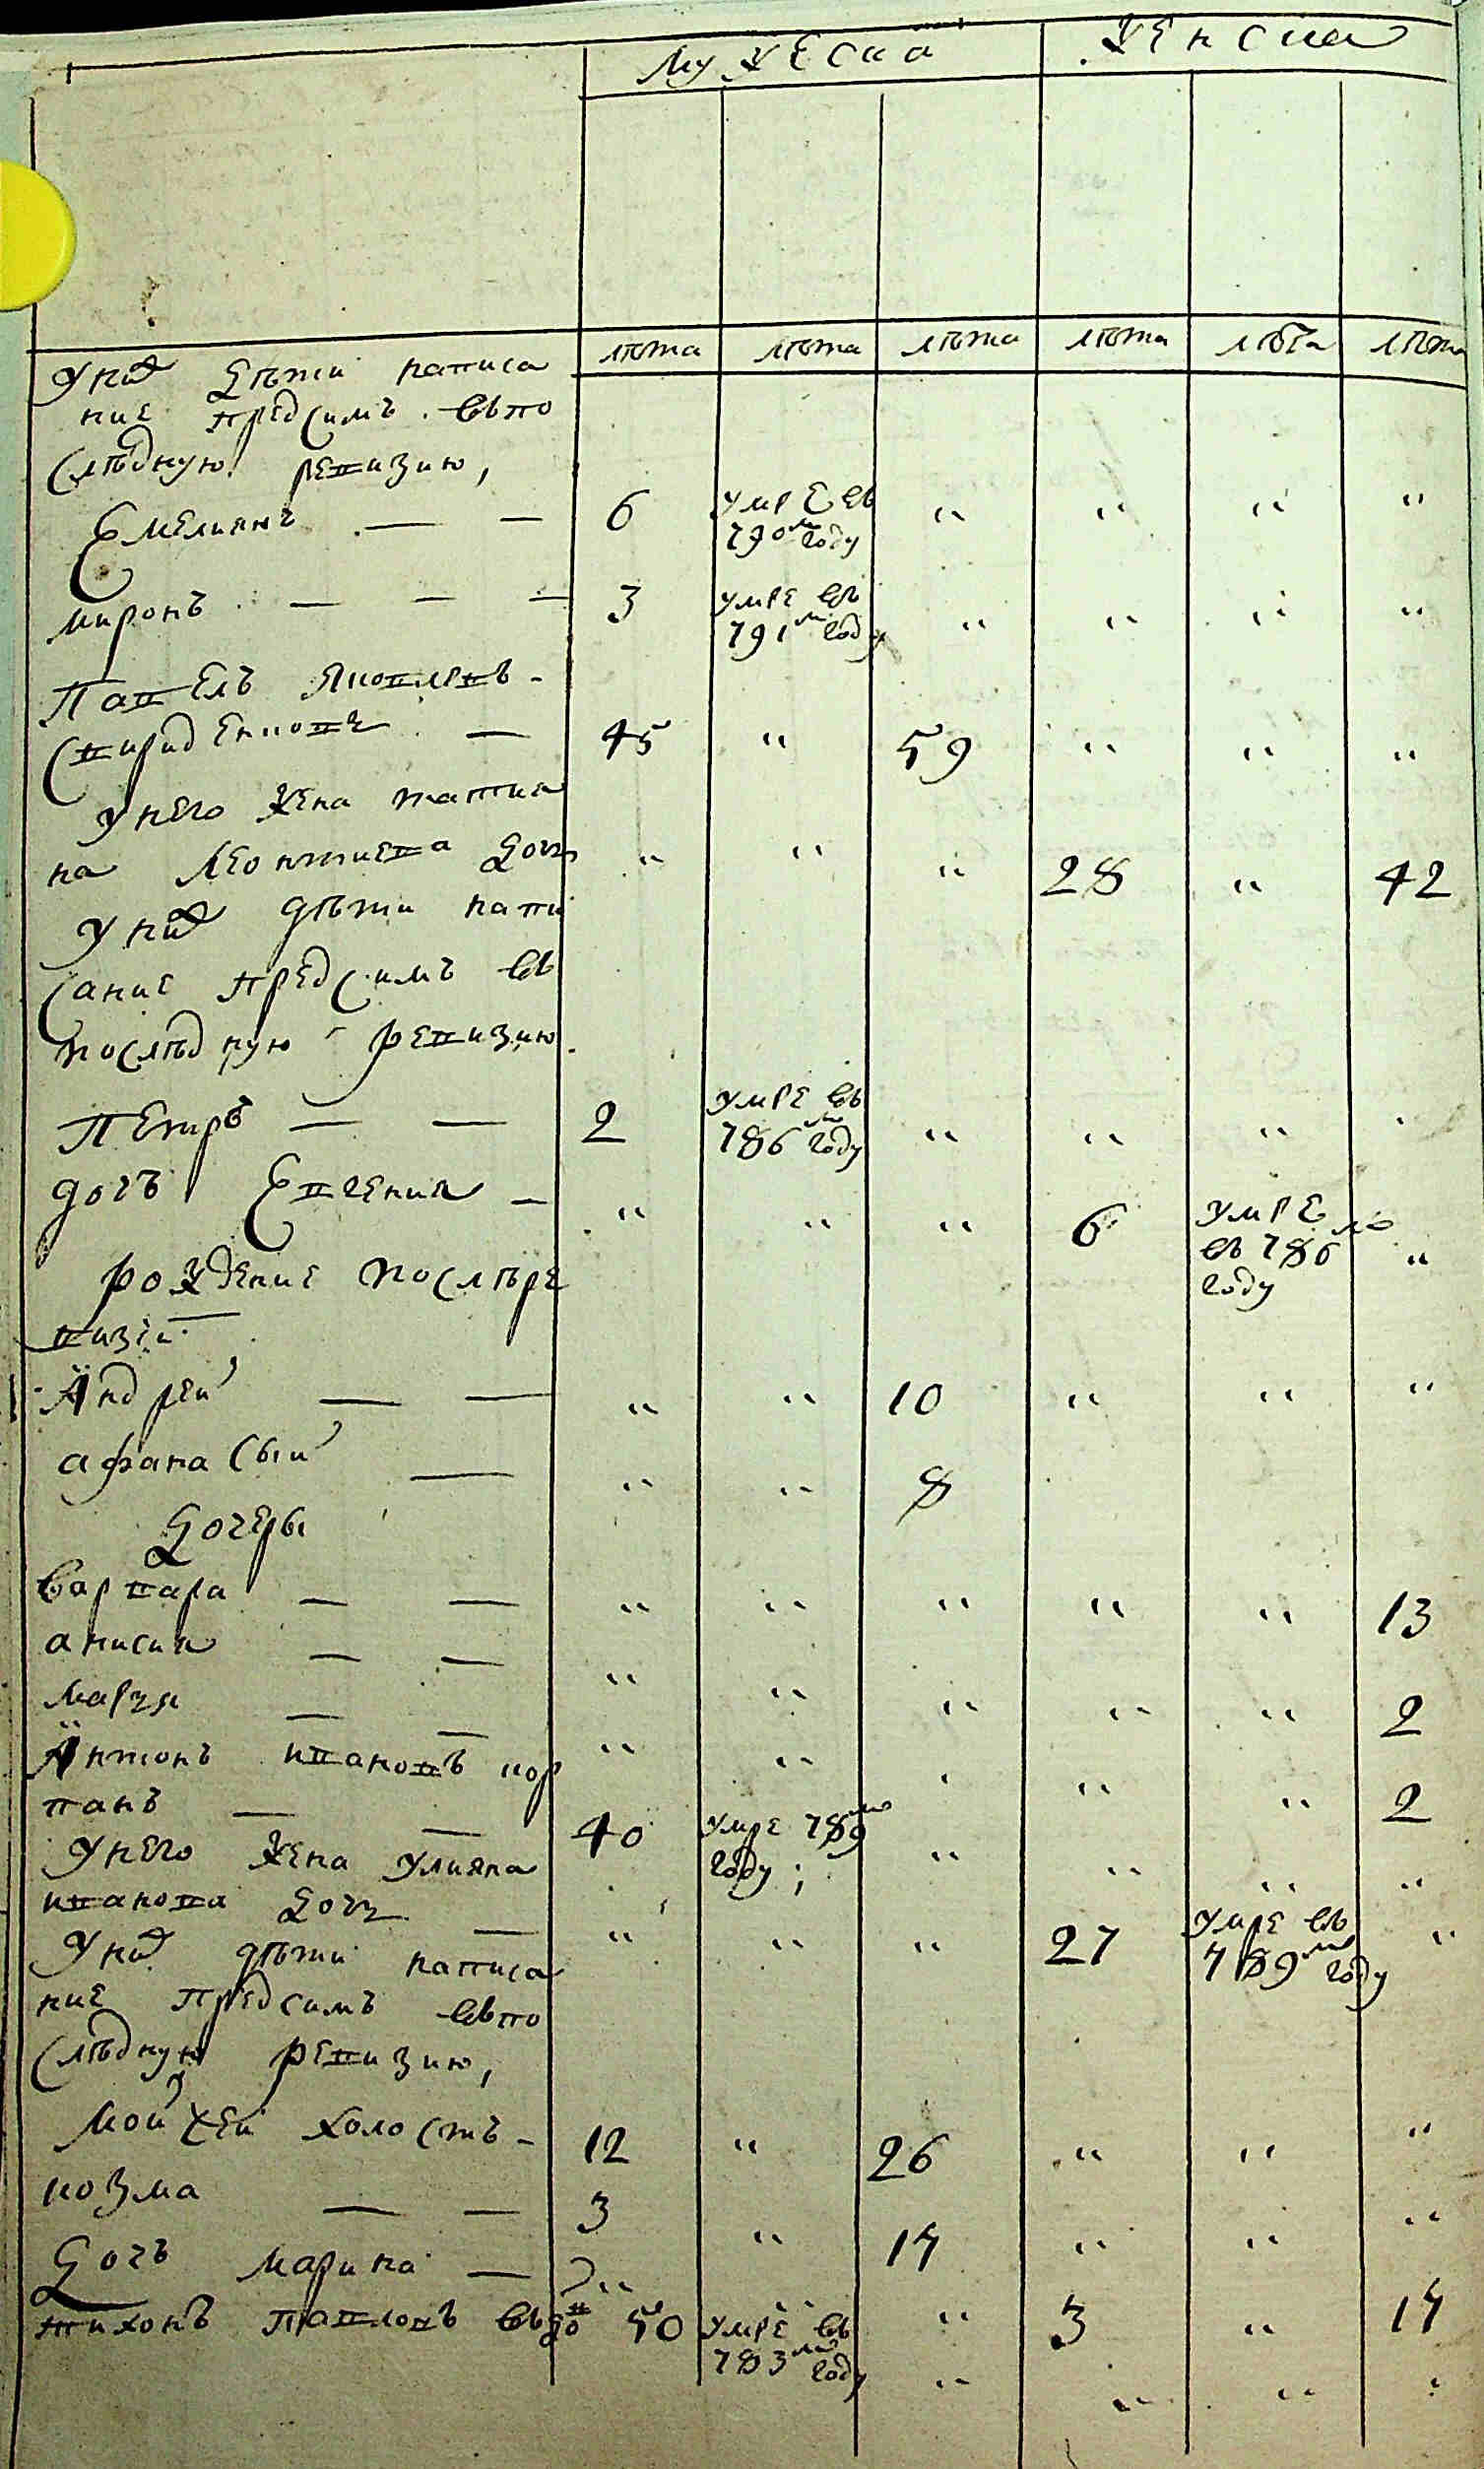 Мужеска Женска
лѣта лѣта лѣта лѣта лѣта лѣта
Унихъ дѣти написа
ние предсимъ въпо
слѣдную ревизию,
Емелиянъ — — 6 умре въ 790м году " " " "
миронъ — — — 3 умре въ 791м году " " " "
Павелъ Яковлевъ -
Спириденковъ — 45 " 59 " " "
унего жена татия
на Леонтиева дочь " " " 28 " 42
Унихъ дѣти напи
сание предсимъ въ
послѣдную ревизию.
Петръ — — 2 умре въ 786мъ году " " " "
дочъ Евгения — " " " 6 умре въ 786мъ году "
рождение послѣре
визіи
Андрей — — " " 10 " " "
афанасый — " " 8
Дочеры
варвара — — " " " " " 13
анисия — — " " " " " 2
Марѳя — — " " " " " 2
Антонъ ивановъ кор
панъ — — 40 умре 789мъ году; " " " "
Унего жена улияна
иванова дочъ — " " " 27 умре въ 789мъ году "
Унихъ дѣти написа
ние предсимъ въпо
слѣдную ревизию,
Мойхей холостъ - 12 " 26 " " "
козма — — 3 " 17 " " "
Дочъ марина — " " " 3 " 17
тихонъ павловъ вдовъ 50 умре въ 783мъ году " " " "